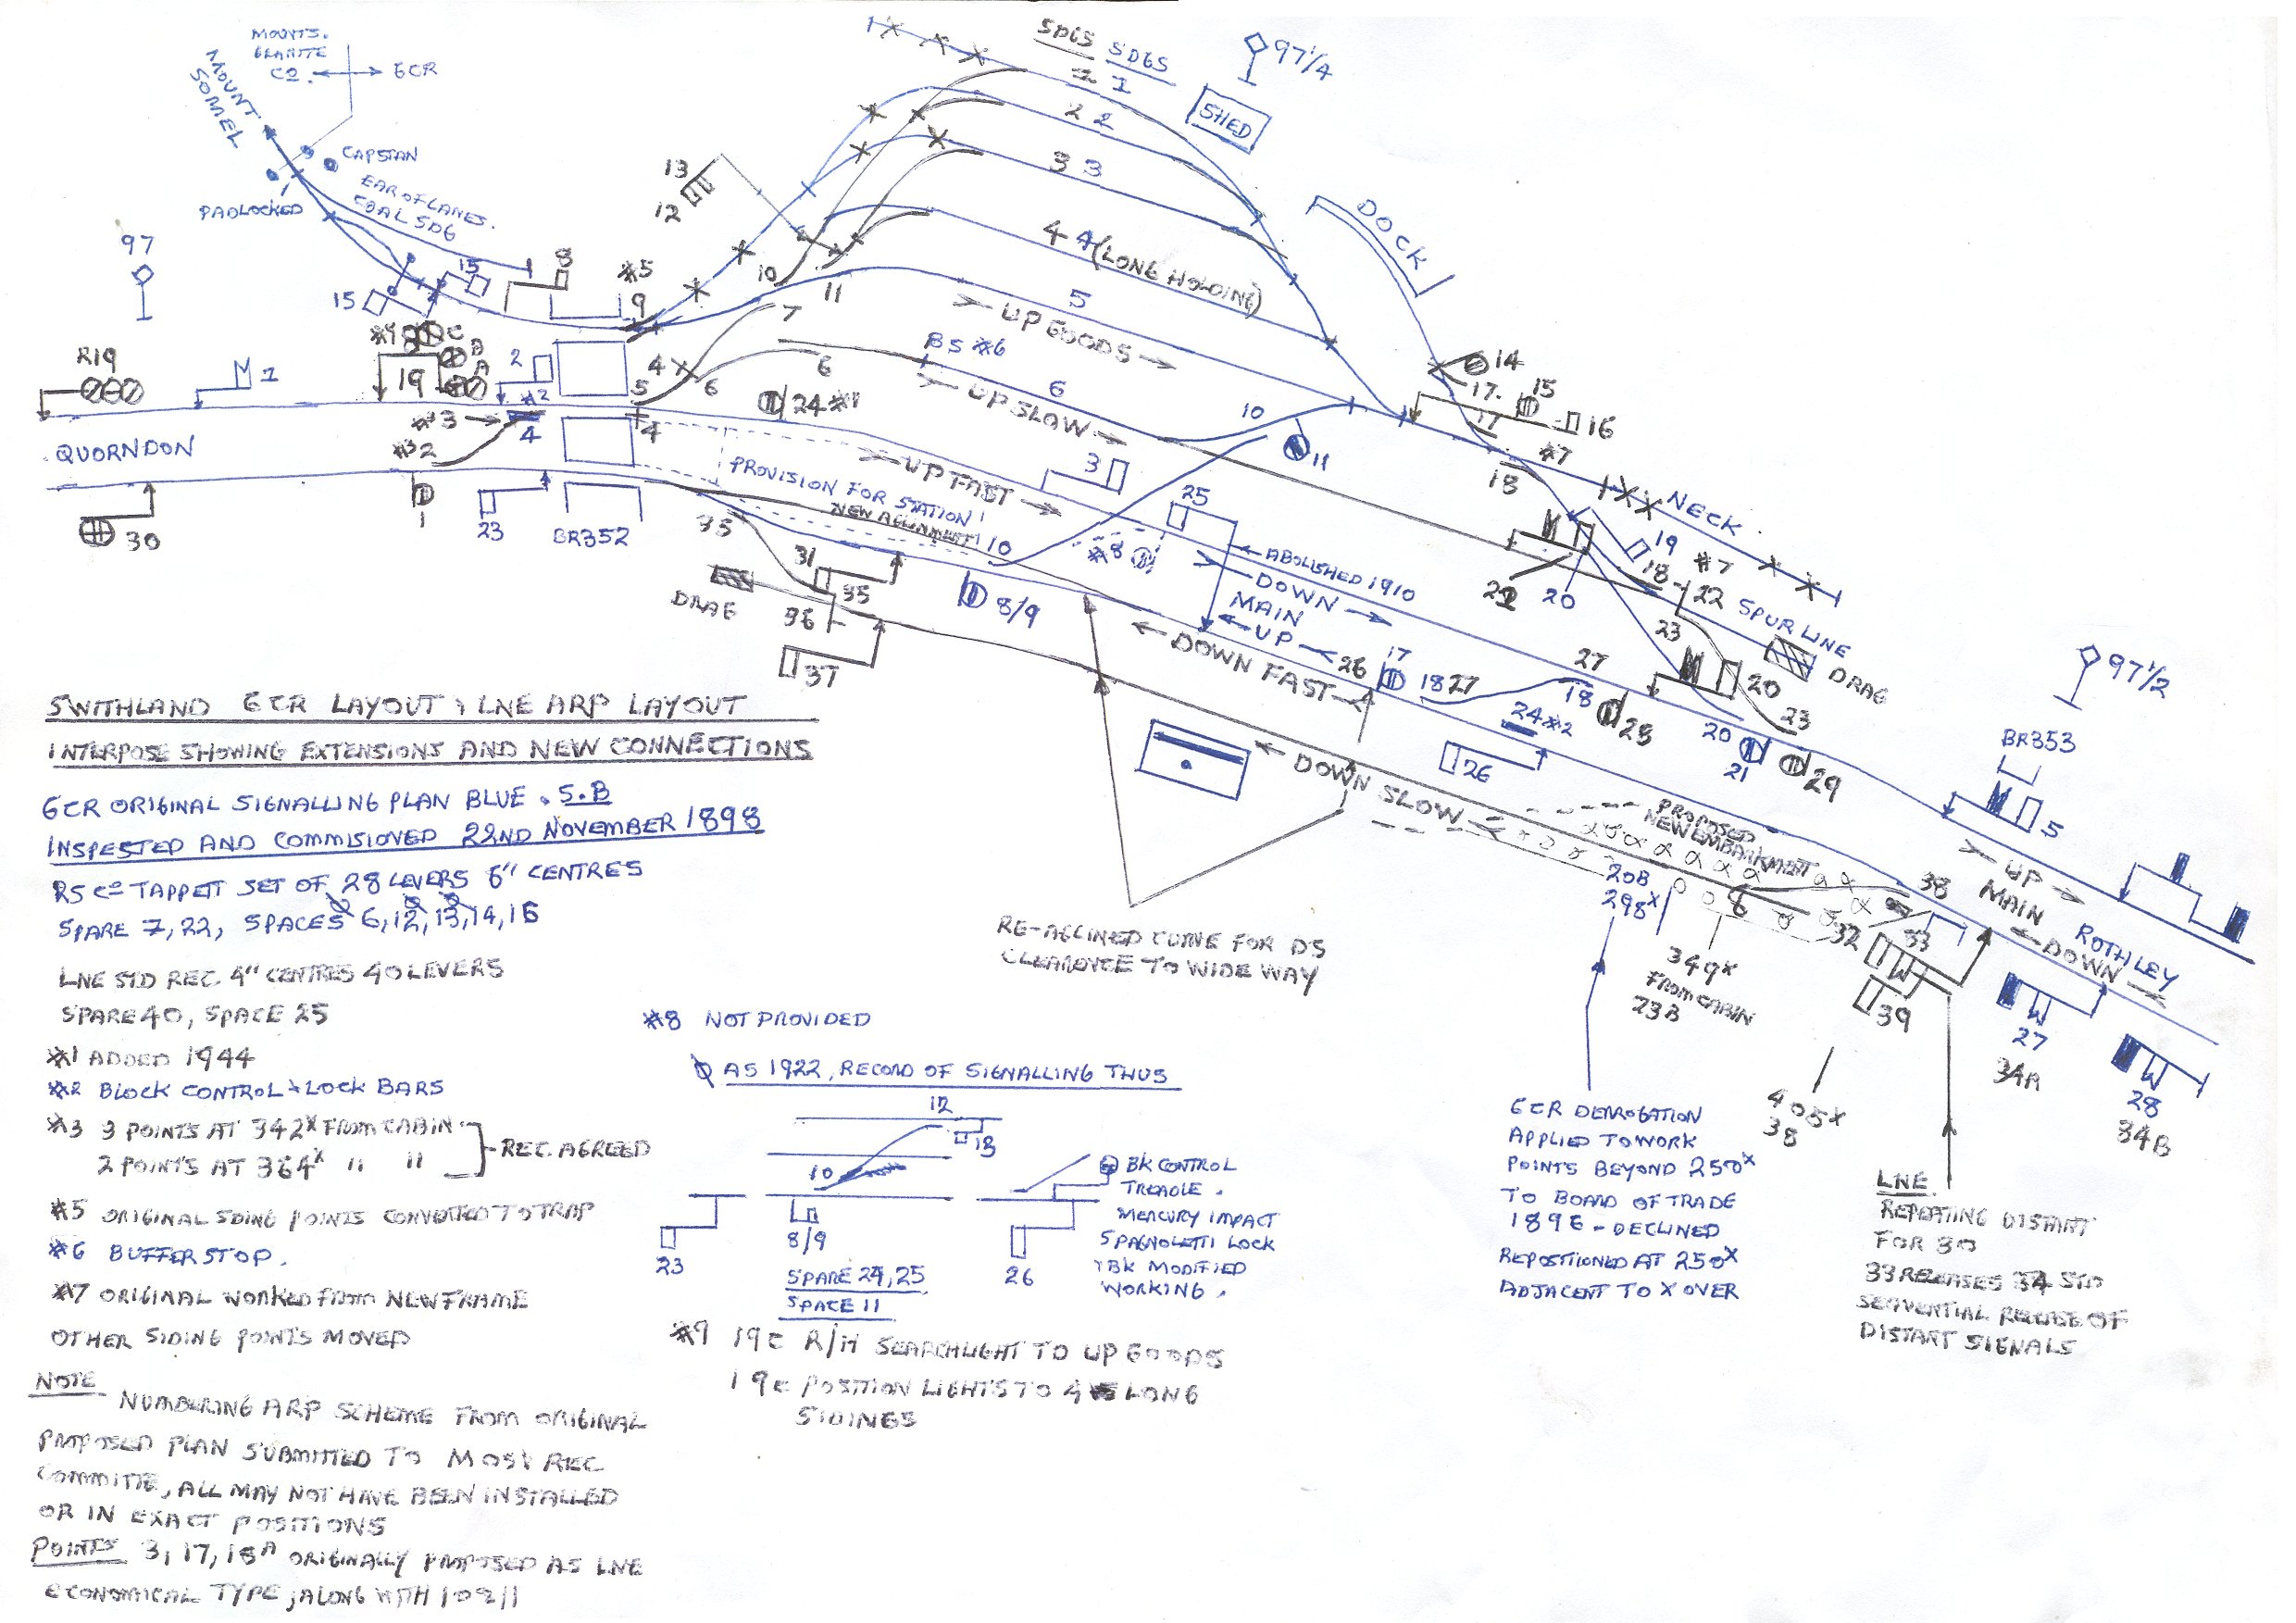 MOUNTS.
GRANITE
CO.
GCR
MOUNT
SORREL
CAPSTAN
PADLOCKED
EAROFLANES.
COAL SDG
97
SDGS
SDGS
1
1
2 2
3 3
4 4 (LONG HOLDING)
5
UP GOODS
SHED
97 1/4
DOCK
13
12
15
15
8
#5
9
10
11
7
4
6
6
5
4
R19
M 1
19
C
B
A
2
#2
#3
4
#3 2
QUORNDON
30
1
23
BR352
24 #1
BS #6
6
UP SLOW
10
11
14
17.
15
16
17
18
#7
NECK.
UP FAST
3
PROVISION FOR STATION!
NEW ALIGNMENT!
35
10
#8
25
ABOLISHED 1910
DOWN
MAIN
UP
20
19 #7
18
22
SPUR LINE
23
DRAG
DRAG
31
35
36
37
8/9
DOWN FAST
26
17
18 27
27
18
28
24 #2
26
20
23
20
21
29
97 1/2
BR353
5
DOWN SLOW
PROPOSED
NEW EMBANKMENT
UP
MAIN
DOWN
ROTHLEY
20B
298X
38
32
33
39
349X
FROM CABIN
23B
405X
38
27
34A
28
34B
SWITHLAND GCR LAYOUT & LNE ARP LAYOUT
INTERPOSE SHOWING EXTENSIONS AND NEW CONNECTIONS
GCR ORIGINAL SIGNALLING PLAN BLUE. S.B
INSPESTED AND COMMISIOVED 22ND NOVEMBER 1898
RS CO TAPPETT SET OF 28 LEVERS 6" CENTRES
SPARE 7, 22, SPACES 6, 12, 13, 14, 16
LNE STD REC. 4" CENTRES 40 LEVERS
SPARE 40, SPACE 25
#1 ADDED 1944
#2 BLOCK CONTROL & LOCK BARS
#3 3 POINTS AT 342X FROM CABIN.
2 POINTS AT 364X " "
REC. AGREED
#5 ORIGINAL SIDING POINTS CONVERTED TO TRAP
#6 BUFFER STOP.
#7 ORIGINAL WORKED FROM NEW FRAME
OTHER SIDING POINTS MOVED
NOTE
NUMBERING ARP SCHEME FROM ORIGINAL
PROPOSED PLAN SUBMITTED TO MOST REC
COMMITTE, ALL MAY NOT HAVE BEEN INSTALLED
OR IN EXACT POSITIONS
POINTS 3, 17, 18A ORIGINALLY PROPOSED AS LNE
ECONOMICAL TYPE, ALONG WITH 10 & 11
RE-ALLINED CURVE FOR DS
CLEARANCE TO WIDE WAY
#8 NOT PROVIDED
Ø AS 1922, RECORD OF SIGNALLING THUS
12
13
10
23
8/9
26
SPARE 24, 25
SPACE 11
BK CONTROL
TREADLE.
MERCURY IMPACT
SPAGNOLETTI LOCK
& BK MODIFIED
WORKING.
#9 19C R/H SEARCHLIGHT TO UP GOODS
19C POSITION LIGHTS TO 4 LONG
SIDINGS
GCR DEROGATION
APPLIED TO WORK
POINTS BEYOND 250X
TO BOARD OF TRADE
1896 - DECLINED
REPOSTIONED AT 250X
ADJACENT TO X OVER
LNE.
REPEATING DISTANT
FOR 30
33 RELEASES 34 STD
SEQUENTIAL RELEASE OF
DISTANT SIGNALS